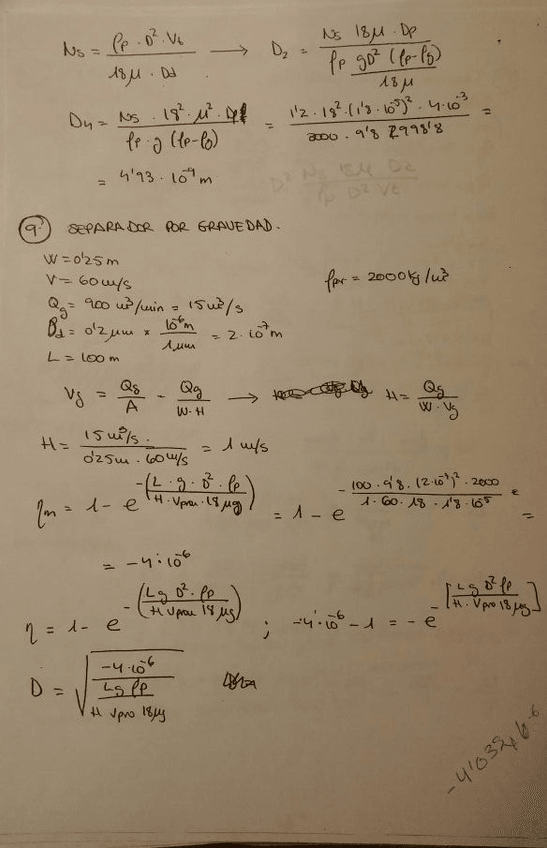 Ns = ρp · D² · Vt / 18μ · Dd → D2 = Ns 18μ · Dp / ρp gD² (ρp-ρg) / 18μ
D4 = Ns · 18² · μ² · / ρp · g (ρp-ρg) = 1'2 · 18² · (1'8 · 10⁻⁵)² · 4·10⁻³ / 2000 · 9'8 · 1998'8 =
= 4'93 · 10⁻⁴ m
9º SEPARADOR POR GRAVEDAD.
W = 0'25 m
V = 60 m/s ρpar = 2000 kg/m³
Qg = 900 m³/min = 15 m³/s
Dd = 0'2 μm × 10⁻⁶m / 1 μm = 2·10⁻⁷ m
L = 100 m
Vg = Qg / A = Qg / W·H → H = Qg / W·Vg
H = 15 m³/s. / 0'25m · 60 m/s = 1 m/s
ηm = 1 - e^-(L · g · D² · ρp / H · Vprom · 18 μg) = 1 - e^- 100 · 9'8 · (2·10⁻⁷)² · 2000 / 1 · 60 · 18 · 1'8 · 10⁻⁵ =
= -4·10⁻⁶
η = 1 - e^-(L g D² · ρp / H Vprom 18 μg) ; -4·10⁻⁶ - 1 = - e^-[L g D² ρp / H · Vpro 18 μg]
D = √(-4·10⁻⁶ / (L g ρp / H Vpro 18 μg))